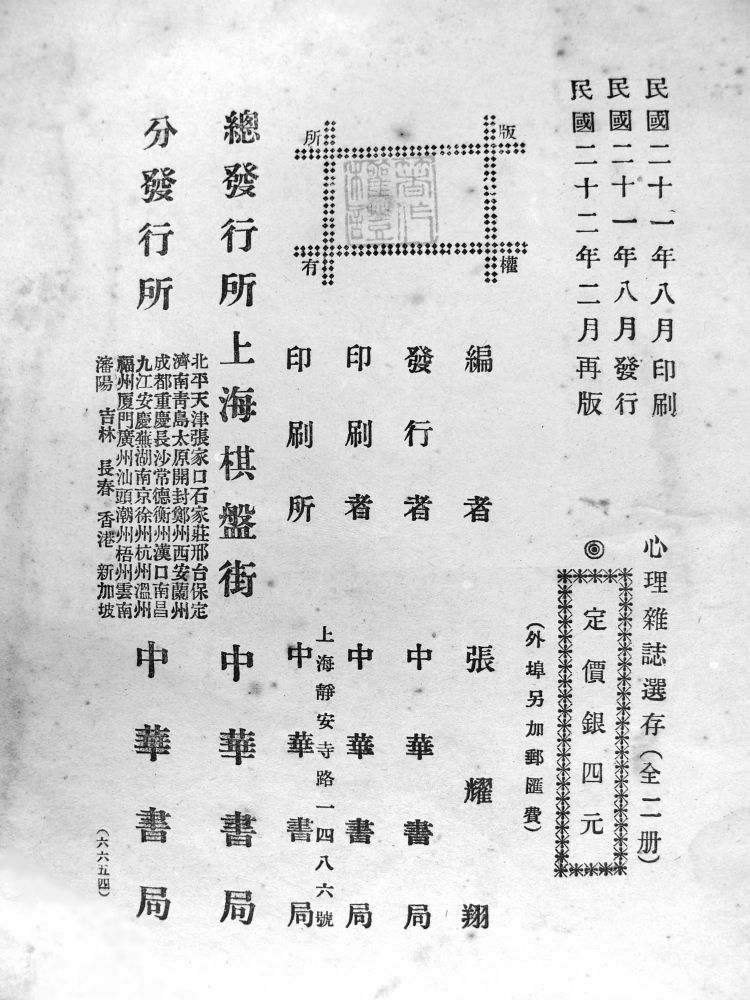 民國二十一年八月印刷
民國二十一年八月發行
民國二十二年二月再版
心理雜誌選存（全二册）
◎定價銀四元
（外埠另加郵匯費）
版權所有
編者 張耀翔
發行者 中華書局
印刷者 中華書局
上海靜安寺路一四八六號
印刷所 中華書局
總發行所 上海棋盤街 中華書局
分發行所 中華書局
北平天津張家口石家莊邢台保定
濟南青島太原開封鄭州西安蘭州
成都重慶長沙常德衡州漢口南昌
九江安慶蕪湖南京徐州杭州溫州
福州厦門廣州汕頭潮州梧州雲南
瀋陽 吉林 長春 香港 新加坡
（六六五四）